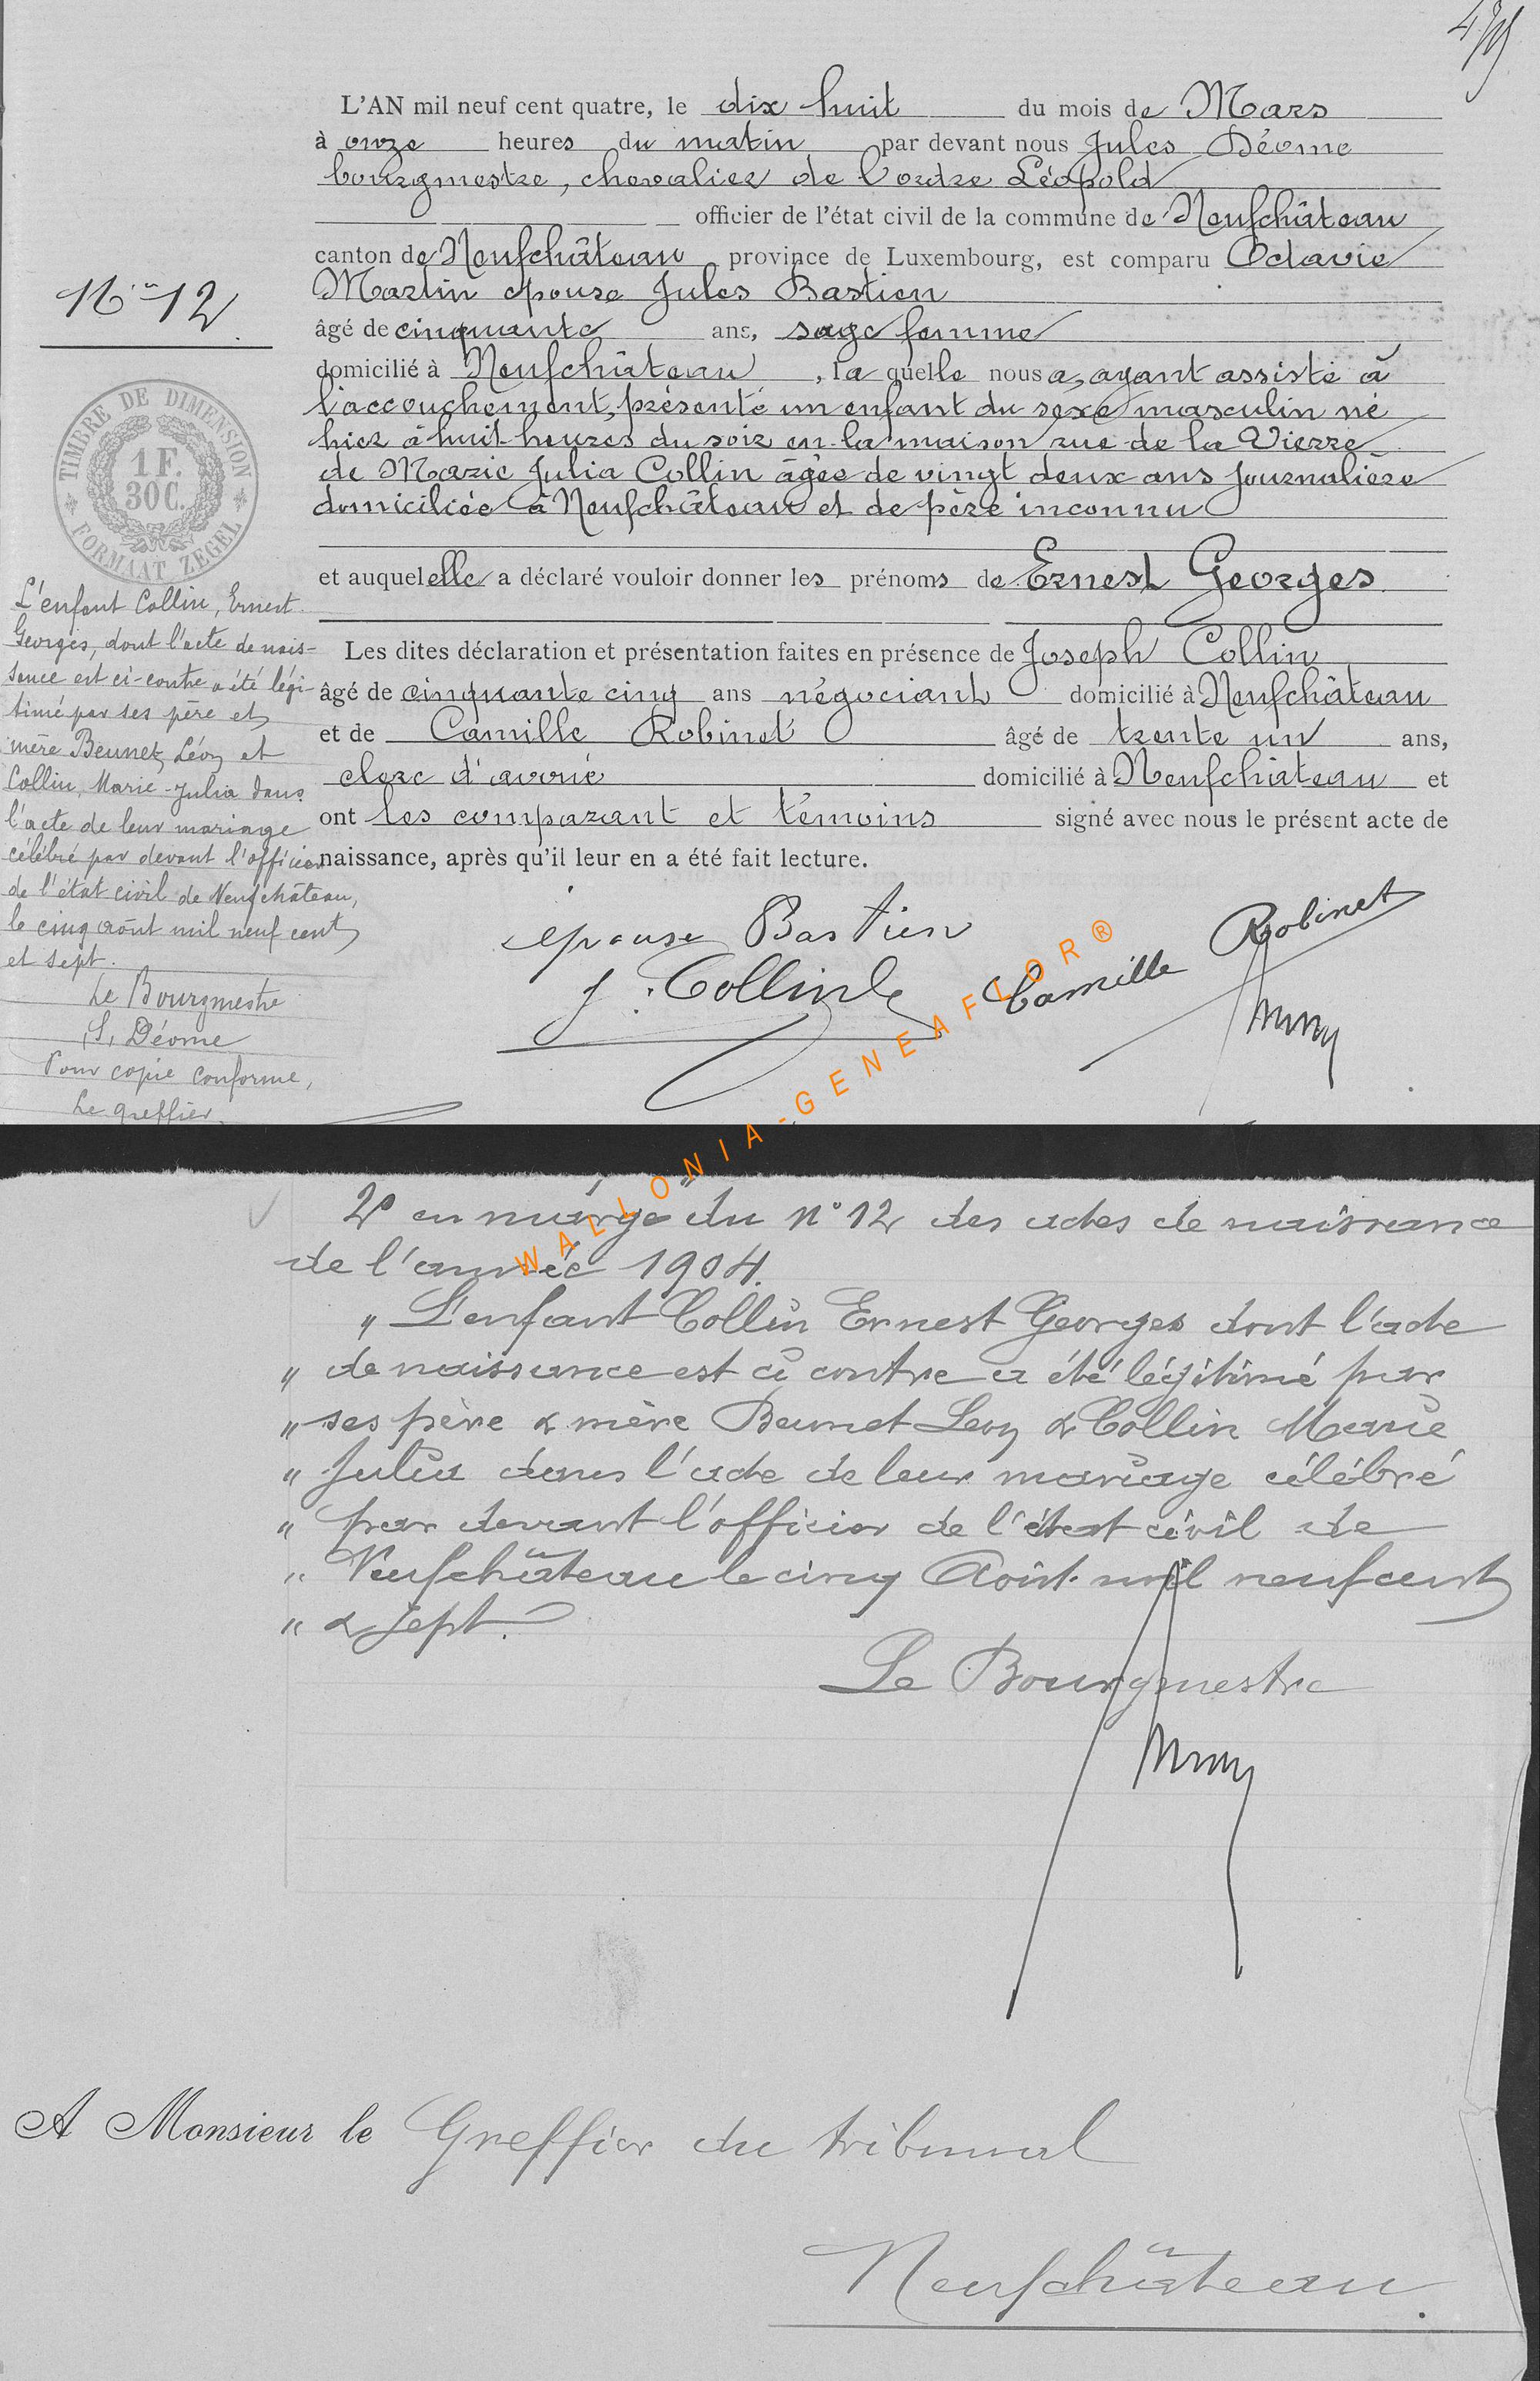 L'AN mil neuf cent quatre, le dix huit du mois de Mars
à onze heures du matin par devant nous Jules Déome
bourgmestre, chevalier de l'ordre Léopold
officier de l'état civil de la commune de Neufchâteau
canton de Neufchâteau province de Luxembourg, est comparu Octavie
Martin épouse Jules Bastien
âgé de cinquante ans, sage femme
domicilié à Neufchâteau, la quelle nous a, ayant assisté à
l'accouchement, présenté un enfant du sexe masculin né
hier à huit heures du soir en la maison rue de la Vierre
de Marie Julia Collin âgée de vingt deux ans journalière
domiciliée à Neufchâteau et de père inconnu
et auquel elle a déclaré vouloir donner les prénoms de Ernest Georges
Les dites déclaration et présentation faites en présence de Joseph Collin
âgé de cinquante cinq ans négociant domicilié à Neufchâteau
et de Camille Robinet âgé de trente un ans,
clerc d'avoué domicilié à Neufchâteau et
ont les comparant et témoins signé avec nous le présent acte de
naissance, après qu'il leur en a été fait lecture.
épouse Bastien
J. Collin
Camille Robinet
N° 12
TIMBRE DE DIMENSION
1 F.
30 C.
FORMAAT ZEGEL
L'enfant Collin, Ernest
Georges, dont l'acte de nais-
sance est ci-contre a été légi-
timé par ses père et
mère Beunet, Léon et
Collin, Marie-Julia dans
l'acte de leur mariage
célébré par devant l'officier
de l'état civil de Neufchâteau,
le cinq août mil neuf cent
et sept.
Le Bourgmestre
Déome
Pour copie conforme,
Le greffier,
WALLONIA-GENEAFLOR®
2° en marge du n° 12 des actes de naissance
de l'année 1904.
" L'enfant Collin Ernest Georges dont l'acte
" de naissance est ci contre a été légitimé par
" ses père & mère Beunet Léon & Collin Marie
" Julia dans l'acte de leur mariage célébré
" par devant l'officier de l'état civil de
" Neufchâteau le cinq Août mil neuf cent
" & sept.
Le Bourgmestre
A Monsieur le Greffier du tribunal
Neufchâteau.